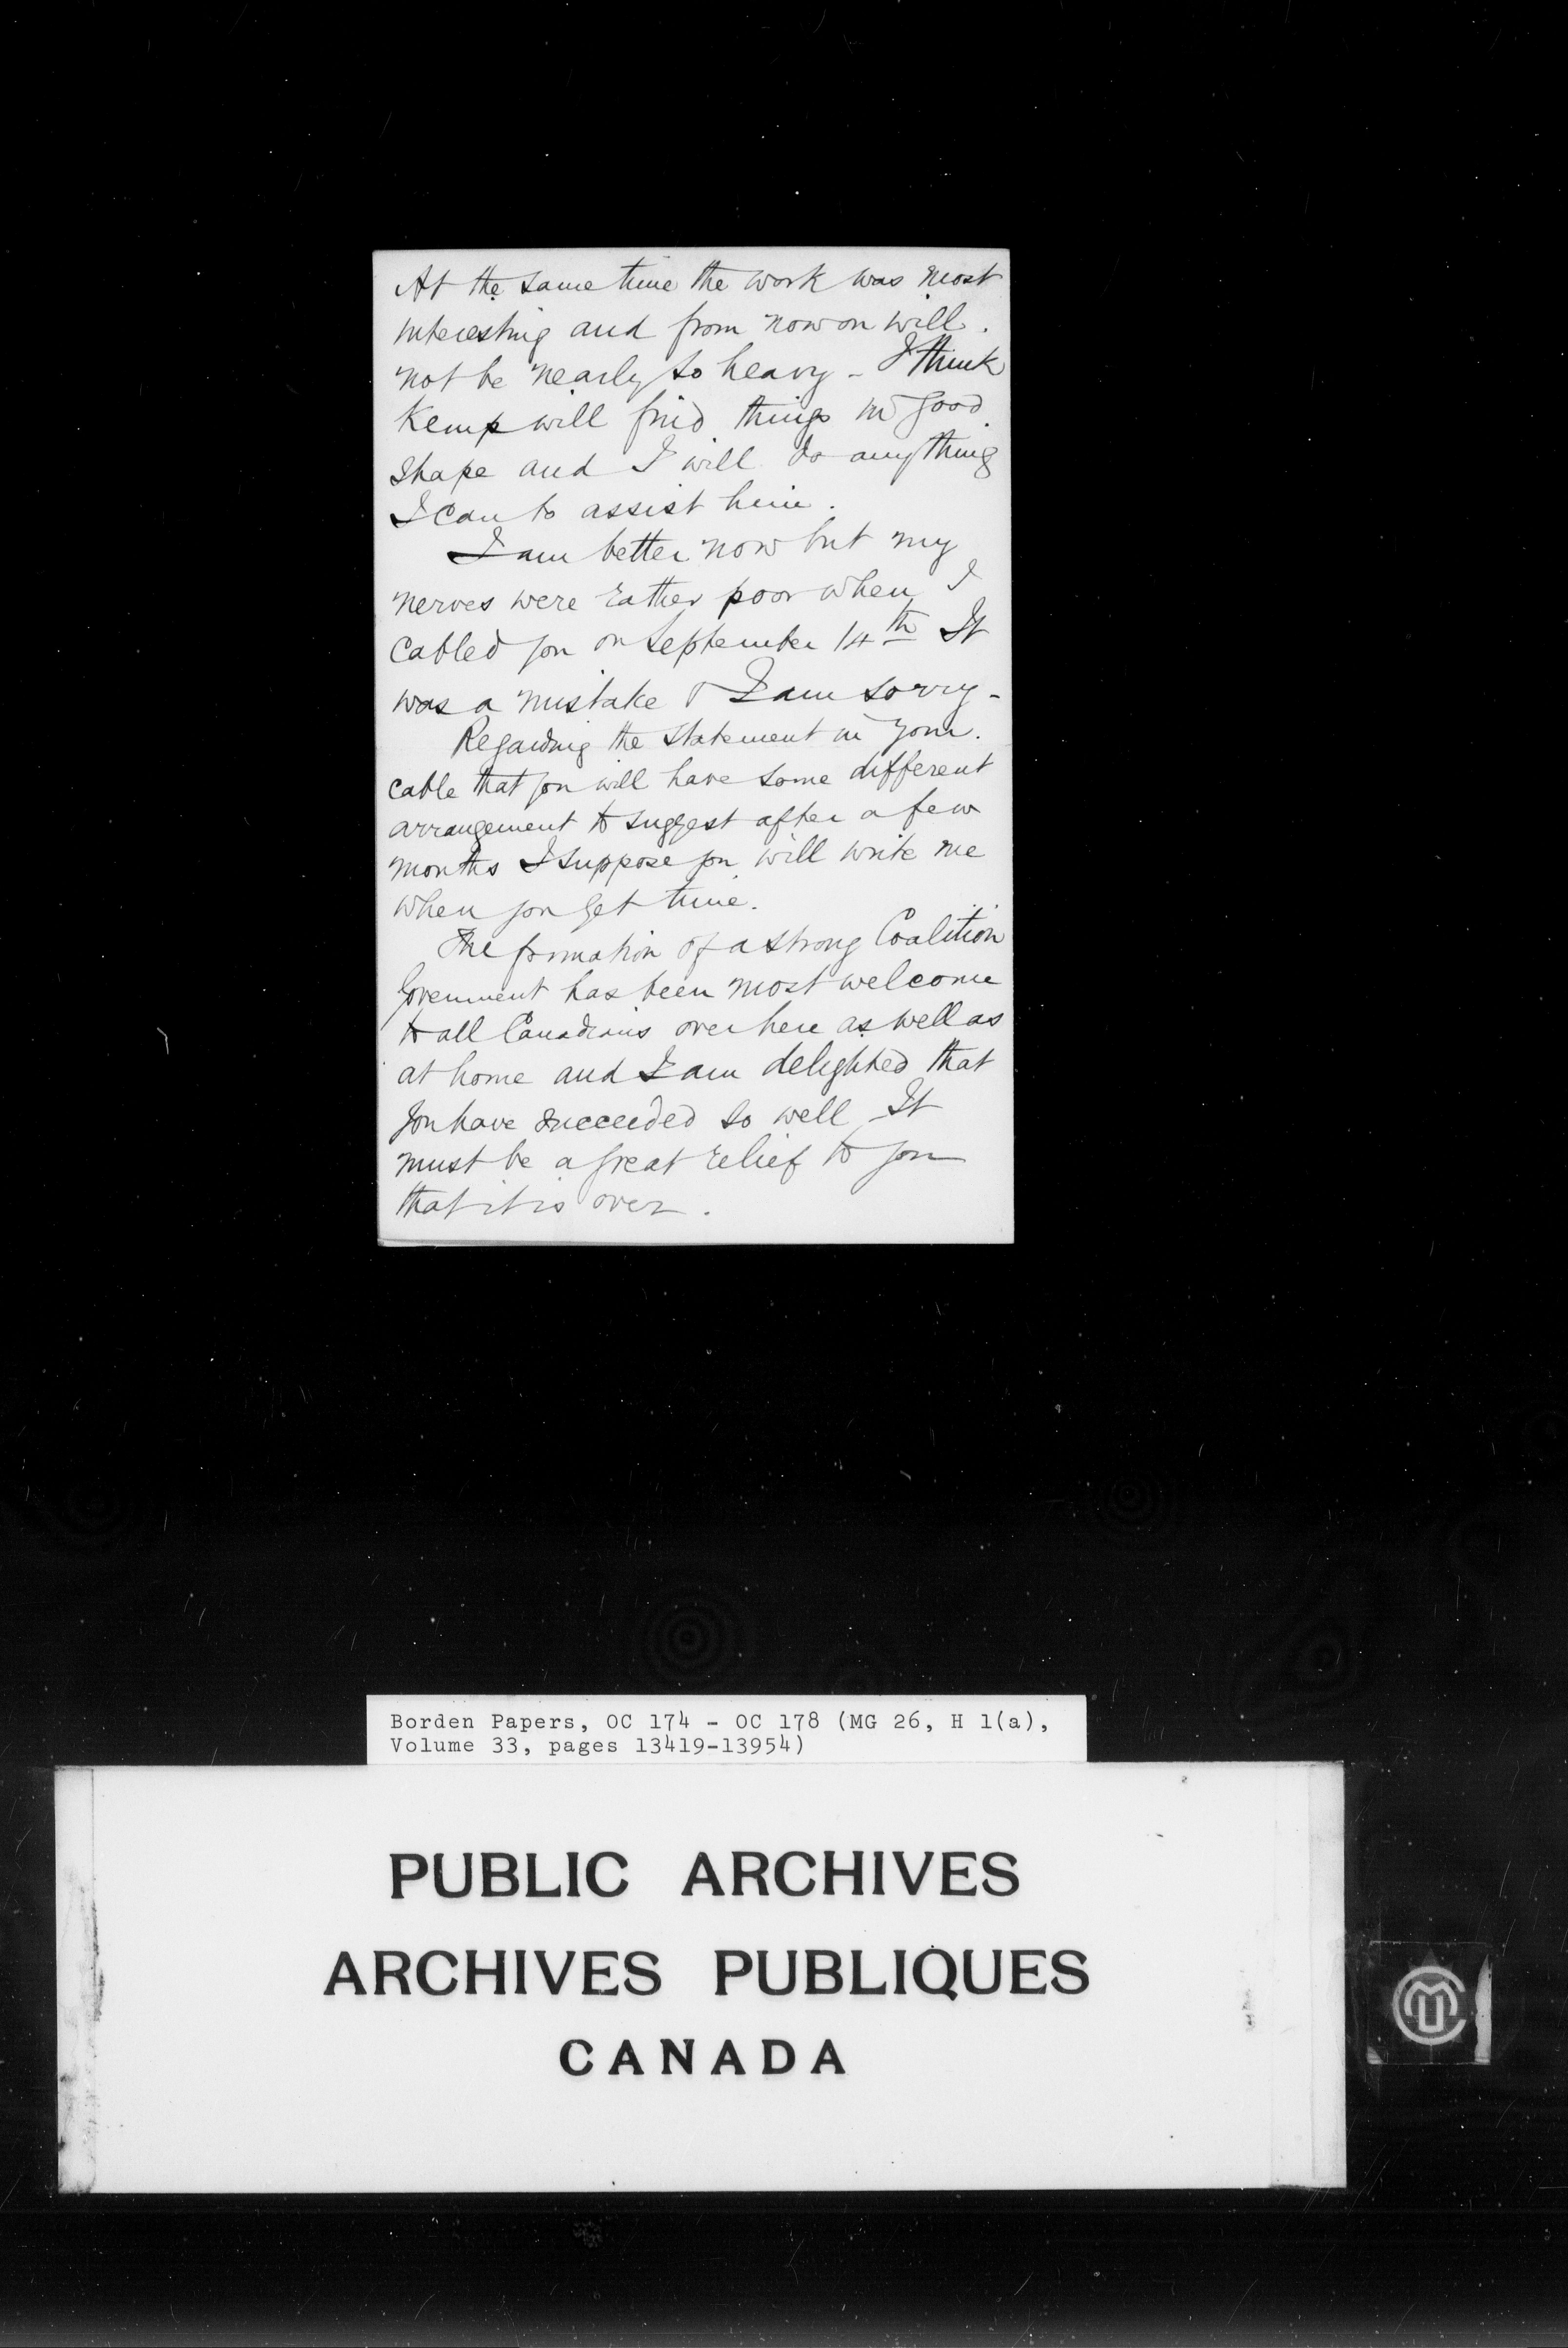 At the same time the work was most
interesting and from now on will
not be nearly so heavy - I think
Kemp will find things in good
shape and I will do anything
I can to assist him.
I am better now but my
nerves were rather poor when I
cabled you on September 14th It
was a mistake & I am sorry -
Regarding the statement in your
cable that you will have some different
arrangement to suggest after a few
months I suppose you will write me
when you get time.
The formation of a strong Coalition
Government has been most welcome
to all Canadians over here as well as
at home and I am delighted that
you have succeeded so well It
must be a great relief to you
that it is over.
Borden Papers, OC 174 - OC 178 (MG 26, H 1(a),
Volume 33, pages 13419-13954)
PUBLIC ARCHIVES
ARCHIVES PUBLIQUES
CANADA